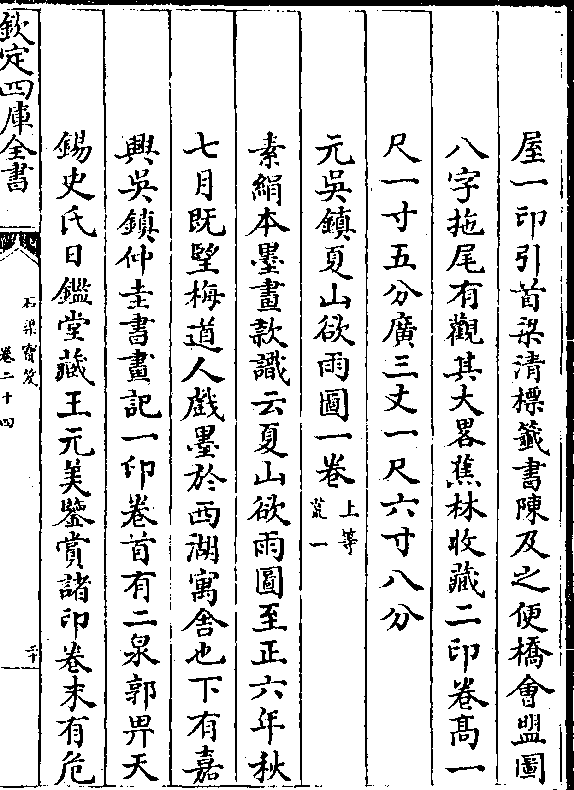 屋一印引首梁清標籤書陳及之便橋會盟圖
八字拖尾有觀其大畧蕉林收藏二印卷髙一
尺一寸五分廣三丈一尺六寸八分
元吳鎮夏山欲雨圖一卷 上等荒一
素絹本墨畫款識云夏山欲雨圖至正六年秋
七月既望梅道人戲墨於西湖寓舍也下有嘉
興吳鎮仲圭書畫記一印卷首有二泉郭畀天
錫史氏日鑑堂藏王元美鑒賞諸印卷末有危
欽定四庫全書
石渠寶笈
卷二十四
二十